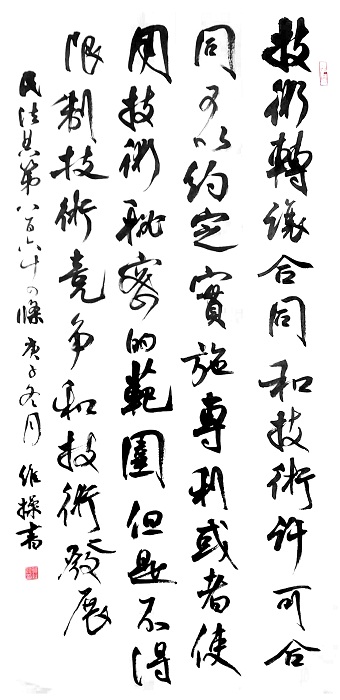 技術轉讓合同和技術许可合
同可以約定實施專利或者使
用技術秘密的範圍但是不得
限制技術竞争和技術發展
民法典第八百六十四條 庚子冬月 維操書